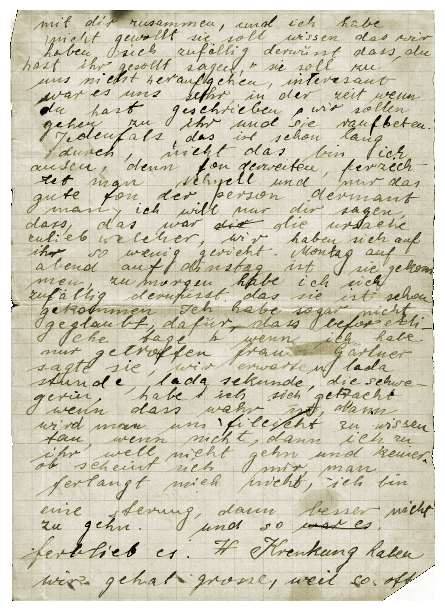 mit dir zusammen, und ich habe
nicht gewollt sie soll wissen das wir
haben sich zufällig derwüst dass, du
hast ihr gesollt sagen, sie soll zu
uns nicht heraufgehen, interesant
war es uns sehr in der zeit wenn
du hast geschrieben, wir sollen
gehen zu ihr und sie raufbeten.
Jedenfals, das ist schon lang
durch, nicht das bin ich
anders, denn fon derweiten, ferzich
tet man schnell und nur das
gute fon der person dermant
man, ich will nur dir sagen,
dass, das war die die ursache
zulieb welcher, wir haben sich auf
ihr so wenig gericht. Montag auf
abend auf dinstag ist sie gekom
men, zu morgen habe ich sich
zufällig derwusst das sie ist schon
gekommen Ich habe sogar nicht
geglaubt, dafür, dass
che tage wenn ich habe
nur getroffen frau Gärtner
sagte sie, wir erwarten lada
stunde, lada sekunde, die schwe-
gerin, habe ich sich getracht
wenn dass wahr ist, dann
wird man uns filleicht zu wissen
tun, wenn nicht, dann ich zu
ihr well nicht gehn und
es scheint sich mir, man
ferlangt mich nicht, ich bin
eine sterung, dann besser nicht
zu gehn. und so war es.
ferblieb es. Krenkung haben
wir gehat grosse, weil so oft